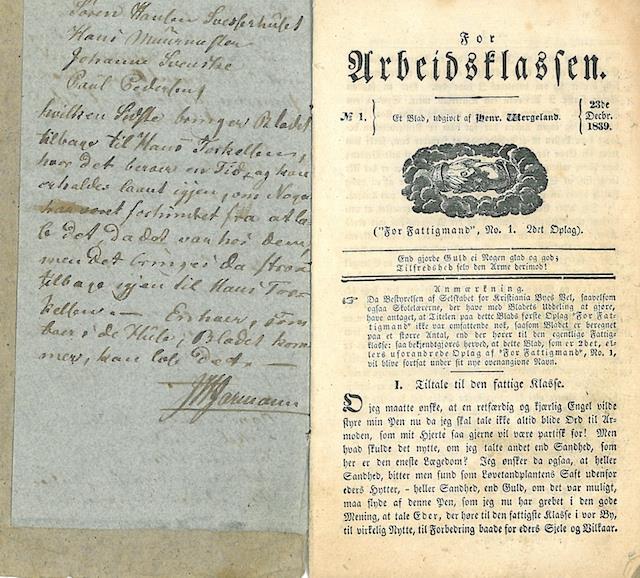 Søren Hansen Svesserhuset
Hans Muurmester
Johanne Svenske
Paul Pedersens
hvilken Sidste bringer Bladet
tilbage til Hans Torkelsen,
hvor det beroer en Tid, og kan
erholdes laant igjen, om Nogen
har været forhindret fra at læ-
se det, da det var hos dem,
men det bringes da strax
tilbage igjen til Hans Tor-
kelsen. Enhver, som
boer i de Huse, Bladet kom-
mer, kan læse det.
For
Arbeidsklassen.
№ 1.
Et Blad, udgivet af Henr. Wergeland.
23de
Decbr.
1839.
("For Fattigmand", No. 1. 2det Oplag).
End gjorde Guld ei Nogen glad og god;
Tilfredshed selv den Arme derimod!
Anmærkning.
☞ Da Bestyrelsen af Selskabet for Kristiania Byes Vel, saavelsom
ogsaa Skolelærerne, der have med Bladets Uddeling at gjøre,
have antaget, at Titelen paa dette Blads første Oplag "For Fat-
tigmand" ikke var omfattende nok, saasom Bladet er beregnet
paa et større Antal, end der hører til den egentlige Fattige
klasse: saa bekjendtgjøres herved, at dette Blad, som er 2det, el-
lers uforandrede Oplag af "For Fattigmand", No. 1,
vil blive fortsat under sit nye ovenangivne Navn.
I. Tiltale til den fattige Klasse.
O jeg maatte ønske, at en retfærdig og kjærlig Engel vilde
styre min Pen nu da jeg skal tale ikke altid blide Ord til Ar-
moden, som mit Hjerte saa gjerne vil være partisk for! Men
hvad skulde det nytte, om jeg talte andet end Sandhed, som
her er den eneste Lægedom? Jeg ønsker da ogsaa, at heller
Sandhed, bitter men sund som Løvetandplantens Saft udenfor
eders Hytter, - heller Sandhed, end Guld, om det var muligt,
maa flyde af denne Pen, som jeg nu har grebet i den gode
Mening, at tale Eder, der høre til den fattigste Klasse i vor By,
til virkelig Nytte, til Forbedring baade for eders Sjele og Vilkaar.